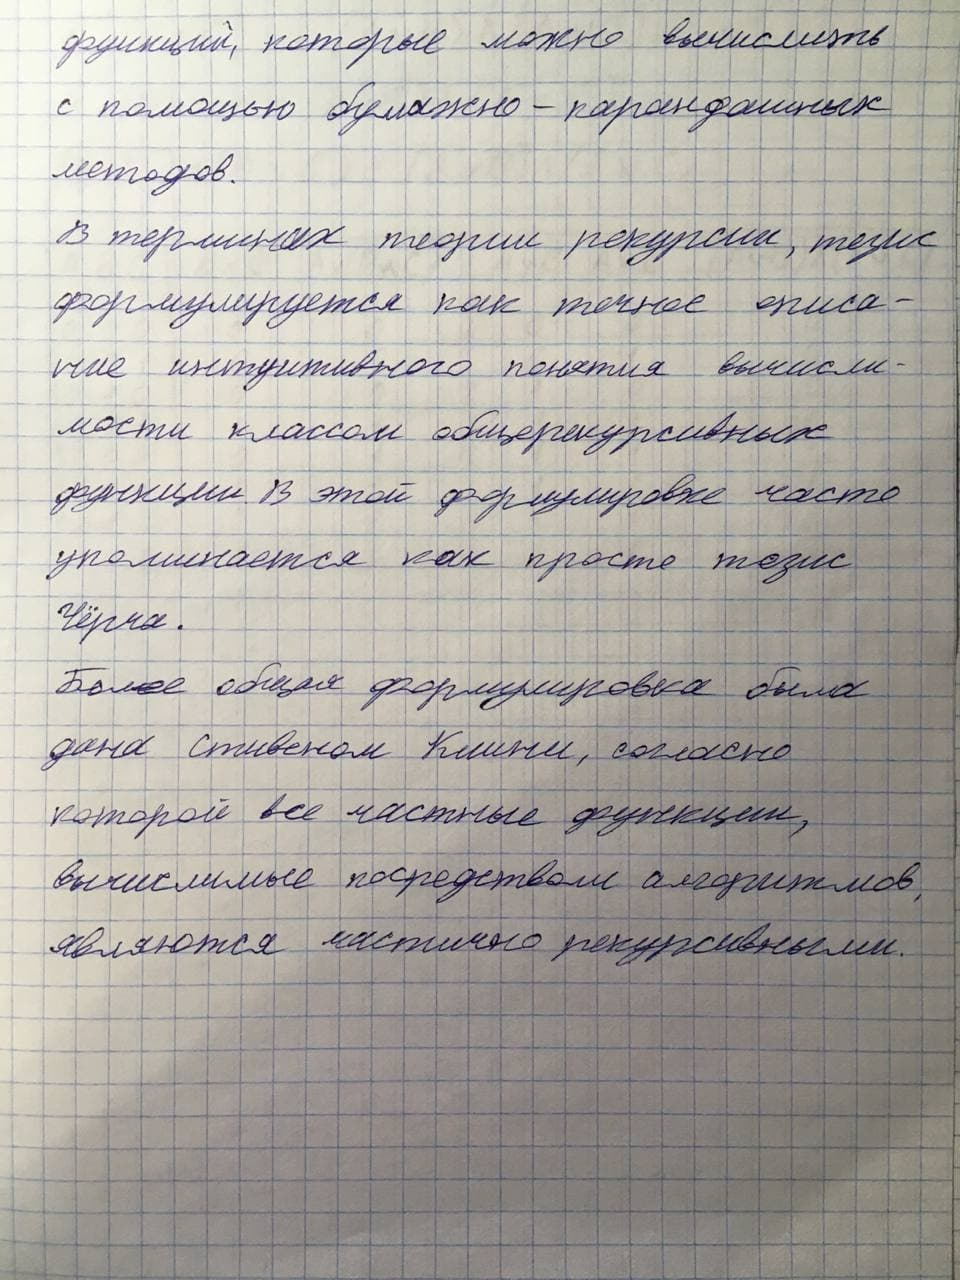 функций, которые можно вычислить
с помощью бумажно-карандашных
методов.
В терминах теории рекурсии, тезис
формулируется как точное описа-
ние интуитивного понятия вычисли-
мости классом общерекурсивных
функции В этой формулировке часто
упоминается как просто тезис
Чёрча.
Более общая формулировка была
дана Стивеном Клини, согласно
которой все частные функции,
вычислимые посредством алгоритмов,
являются частично рекурсивными.